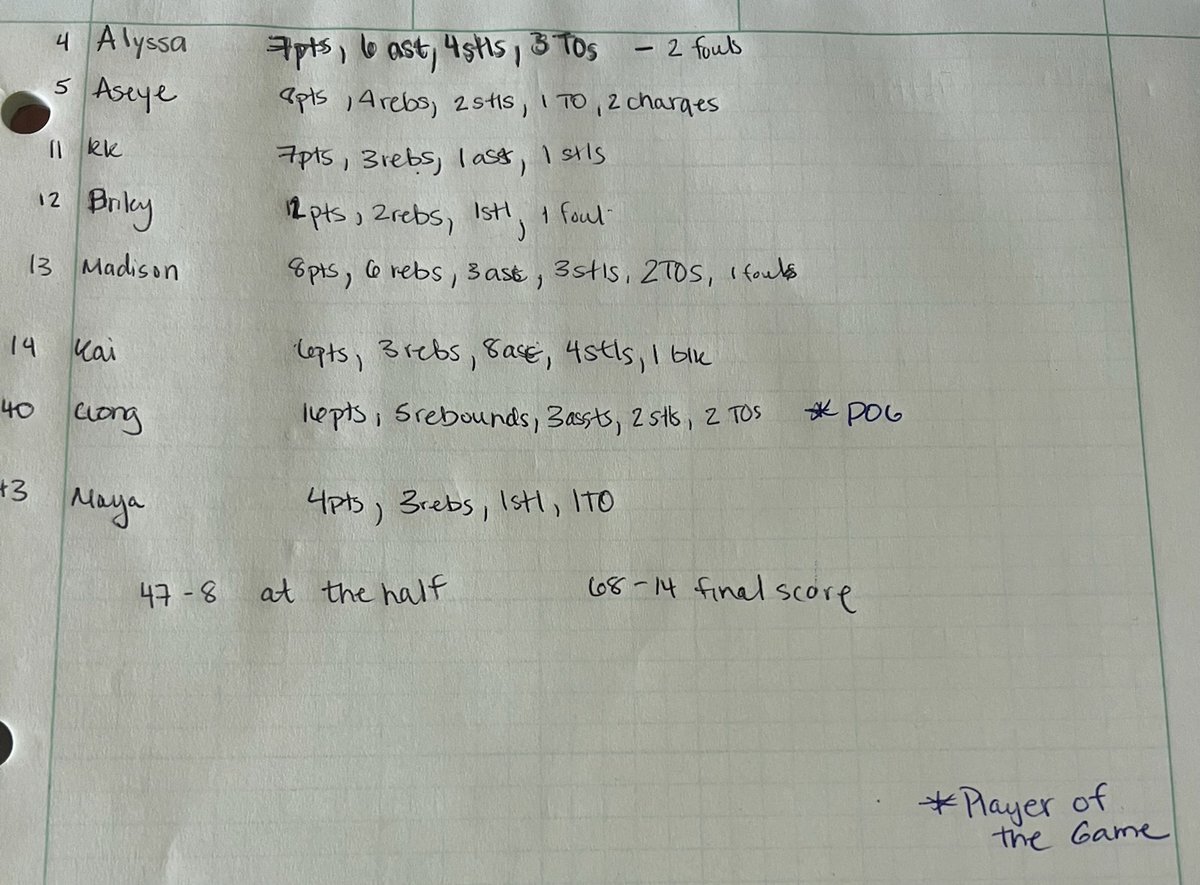 4 Alyssa 7pts, 6 ast, 4stls, 3 TOs - 2 fouls
5 Aseye 8pts, 4rebs, 2stls, 1 TO, 2 charges
11 kk 7pts, 3rebs, 1 ast, 1 stls
12 Briley 12pts, 2rebs, 1stl, 1 foul
13 Madison 8pts, 6 rebs, 3 ast, 3stls, 2TOS, 1 fouls
14 Kai 6pts, 3 rebs, 8 ast, 4stls, 1 blk
40 16pts, 5rebounds, 3assts, 2 stls, 2 TOs * POG
43 Maya 4pts, 3rebs, 1stl, 1TO
47-8 at the half 68-14 final score
*Player of
the Game